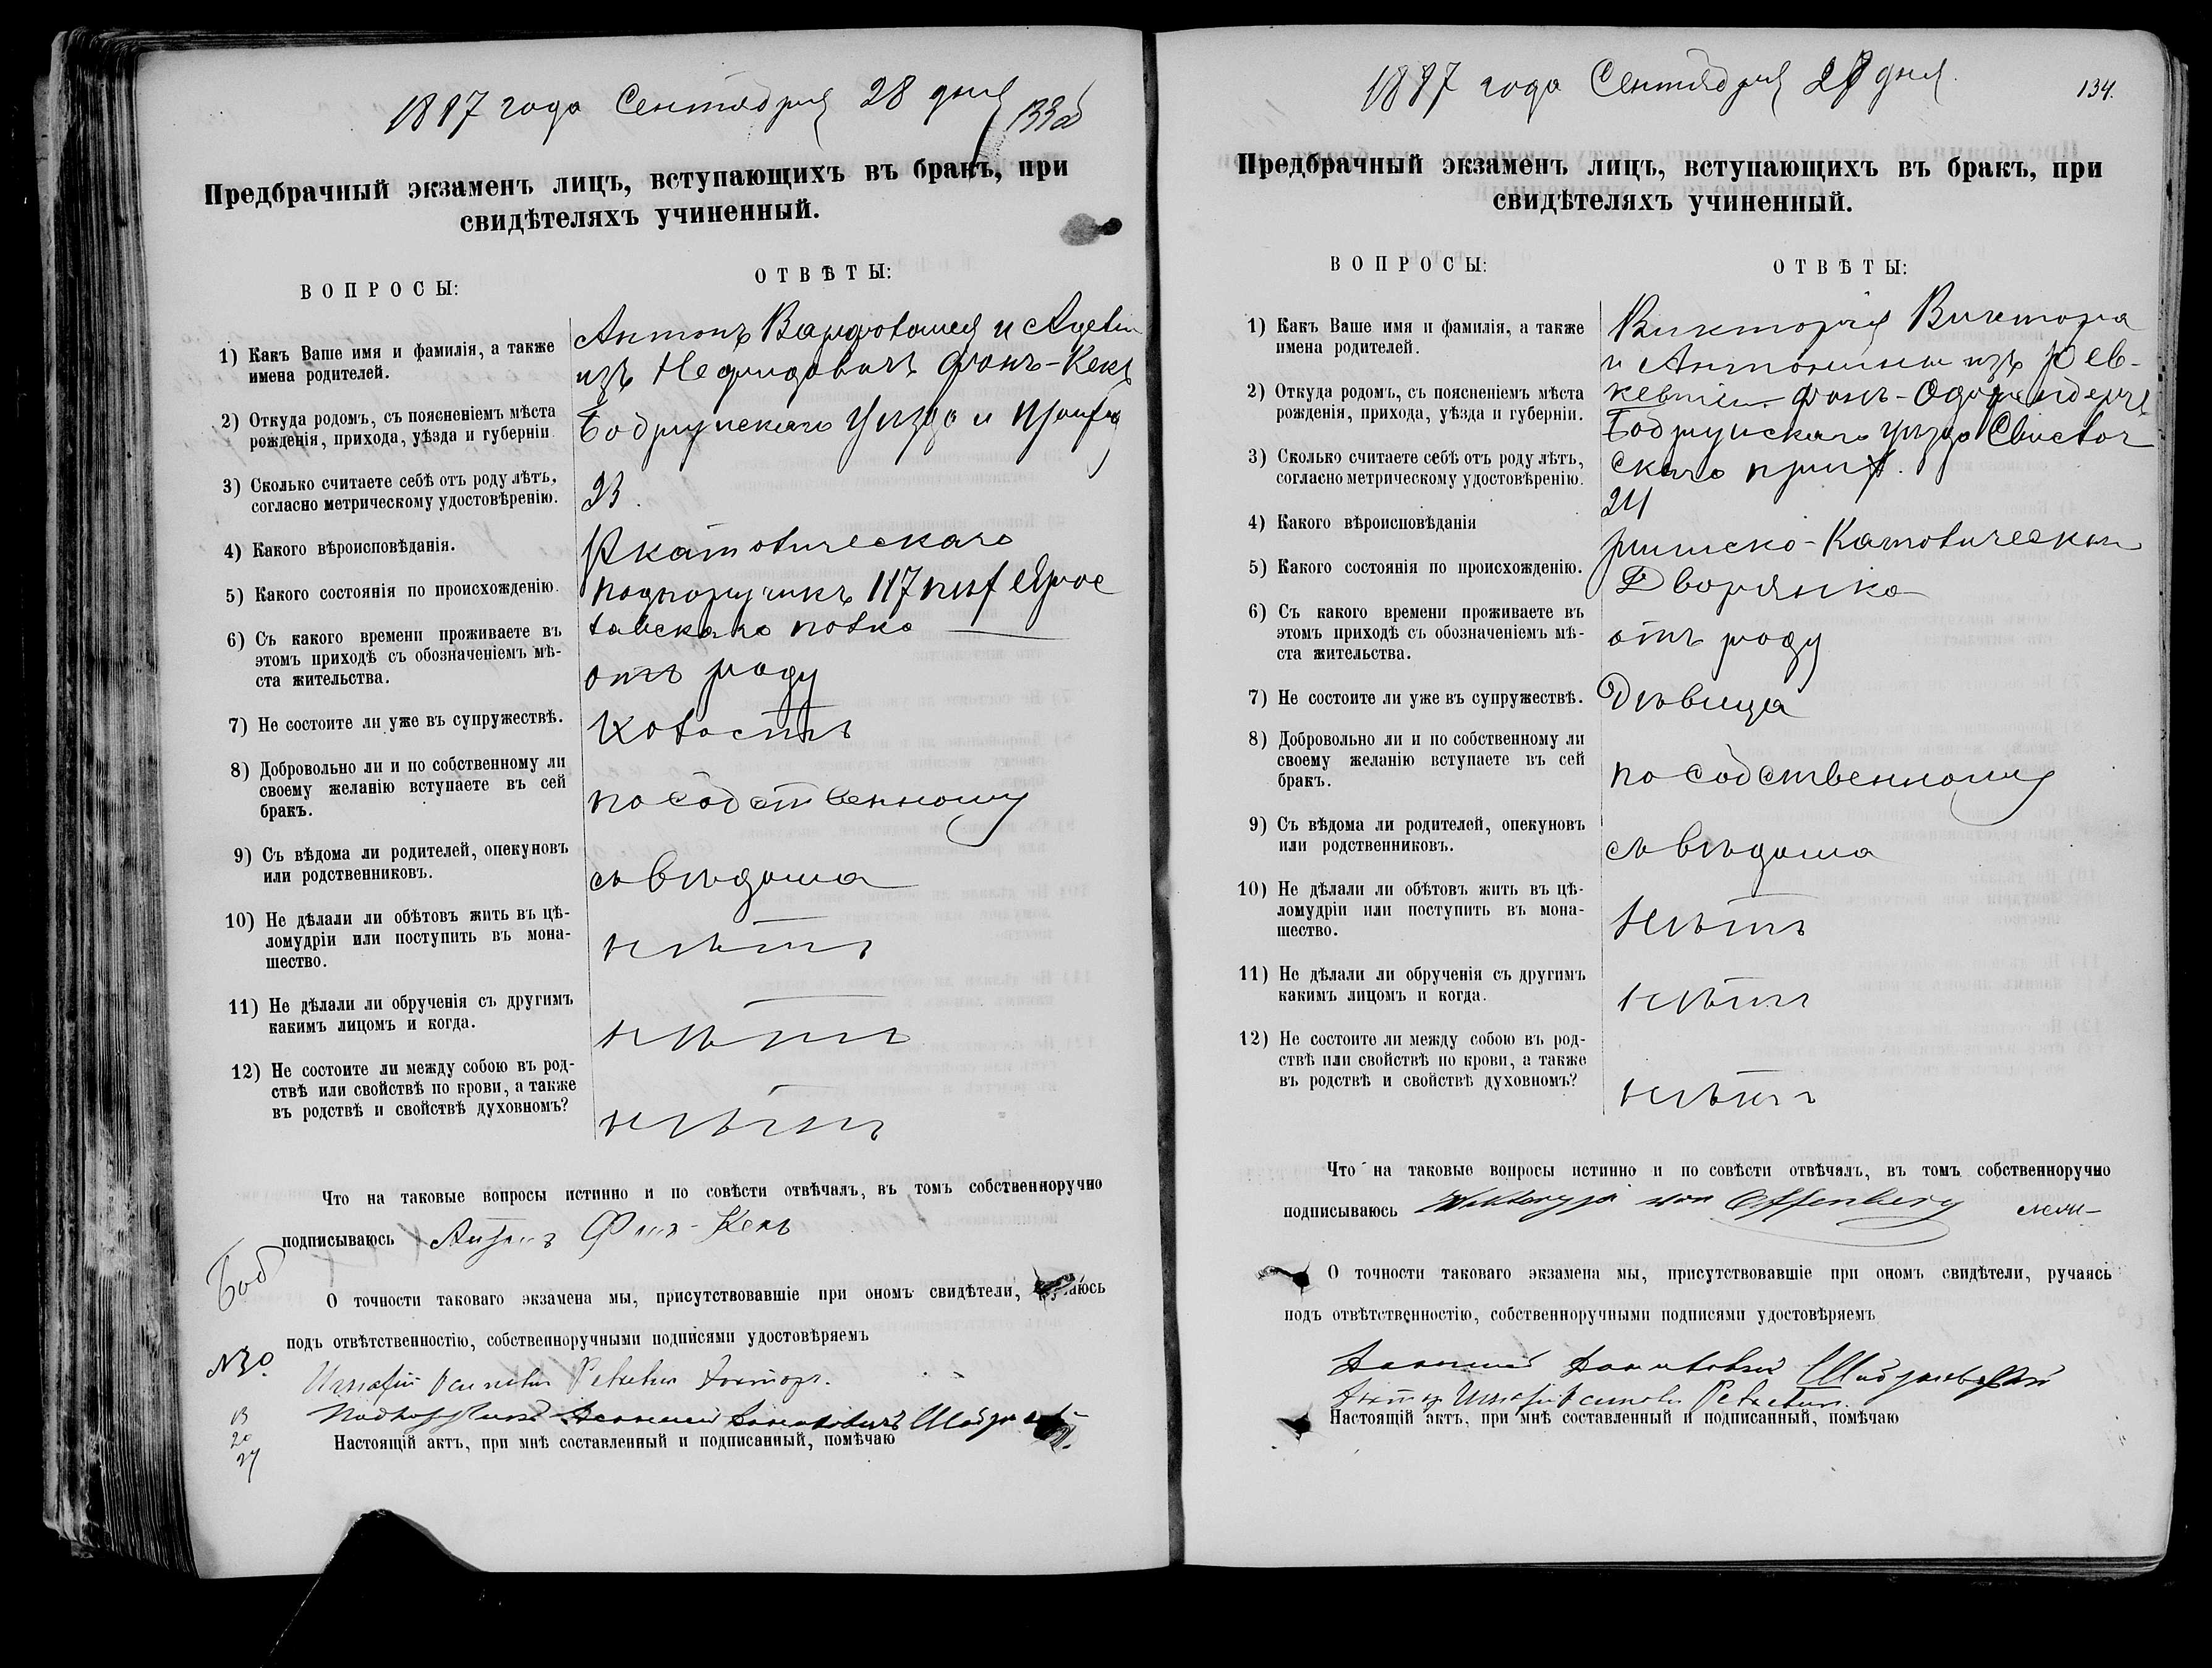 1887 года Сентября 28 дня
133об
Предбрачный экзаменъ лицъ, вступающихъ въ бракъ, при
свидѣтеляхъ учиненный.
ВОПРОСЫ:
ОТВѢТЫ:
1) Какъ Ваше имя и фамилія, а также
имена родителей.
Антонъ Варфоломея и
изъ Фонъ-Кекъ
2) Откуда родомъ, съ поясненіемъ мѣста
рожденія, прихода, уѣзда и губерніи
Бобруйскаго уѣзда и
3) Сколько считаете себѣ отъ роду лѣтъ,
согласно метрическому удостовѣренію.
23.
4) Какого вѣроисповѣданія.
Р католическаго
5) Какого состоянія по происхожденію.
подпоручикъ 117 пѣх Ярос
лавскаго полка
6) Съ какого времени проживаете въ
этомъ приходѣ съ обозначеніемъ мѣ-
ста жительства.
отъ роду
7) Не состоите ли уже въ супружествѣ.
холостъ
8) Добровольно ли и по собственному ли
своему желанію вступаете въ сей
бракъ.
по собственному
9) Съ вѣдома ли родителей, опекуновъ
или родственниковъ.
съ вѣдома
10) Не дѣлали ли обѣтовъ жить въ цѣ-
ломудріи или поступить въ мона-
шество.
нѣтъ
11) Не дѣлали ли обрученія съ другимъ
какимъ лицомъ и когда.
нѣтъ
12) Не состоите ли между собою въ род-
ствѣ или свойствѣ по крови, а также
въ родствѣ и свойствѣ духовномъ?
нѣтъ
Что на таковые вопросы истинно и по совѣсти отвѣчалъ, въ томъ собственноручно
подписываюсь Антонъ Фонъ-Кекъ
Боб
О точности таковаго экзамена мы, присутствовавшіе при ономъ свидѣтели,
подъ отвѣтственностію, собственноручными подписями удостовѣряемъ
№30.
13
20
27
Настоящій актъ, при мнѣ составленный и подписанный, помѣчаю
1887 года Сентября 28 дня
134.
Предбрачный экзаменъ лицъ, вступающихъ въ бракъ, при
свидѣтеляхъ учиненный.
ВОПРОСЫ:
ОТВѢТЫ:
1) Какъ Ваше имя и фамилія, а также
имена родителей.
Викторія Виктора
и Антонины изъ Рев-
фонъ-
2) Откуда родомъ, съ поясненіемъ мѣста
рожденія, прихода, уѣзда и губерніи.
Бобруйскаго уѣзда Свислоч
скаго прих.
3) Сколько считаете себѣ отъ роду лѣтъ,
согласно метрическому удостовѣренію.
24
4) Какого вѣроисповѣданія
римско-католическаго
5) Какого состоянія по происхожденію.
Дворянка
6) Съ какого времени проживаете въ
этомъ приходѣ съ обозначеніемъ мѣ-
ста жительства.
отъ роду
7) Не состоите ли уже въ супружествѣ.
Дѣвица
8) Добровольно ли и по собственному ли
своему желанію вступаете въ сей
бракъ.
по собственному
9) Съ вѣдома ли родителей, опекуновъ
или родственниковъ.
съ вѣдома
10) Не дѣлали ли обѣтовъ жить въ цѣ-
ломудріи или поступить въ мона-
шество.
нѣтъ
11) Не дѣлали ли обрученія съ другимъ
какимъ лицомъ и когда.
нѣтъ
12) Не состоите ли между собою въ род-
ствѣ или свойствѣ по крови, а также
въ родствѣ и свойствѣ духовномъ?
нѣтъ
Что на таковые вопросы истинно и по совѣсти отвѣчалъ, въ томъ собственноручно
подписываюсь Wiktoryja von Offenberg
О точности таковаго экзамена мы, присутствовавшіе при ономъ свидѣтели, ручаясь
подъ отвѣтственностію, собственноручными подписями удостовѣряемъ
Настоящій актъ, при мнѣ составленный и подписанный, помѣчаю